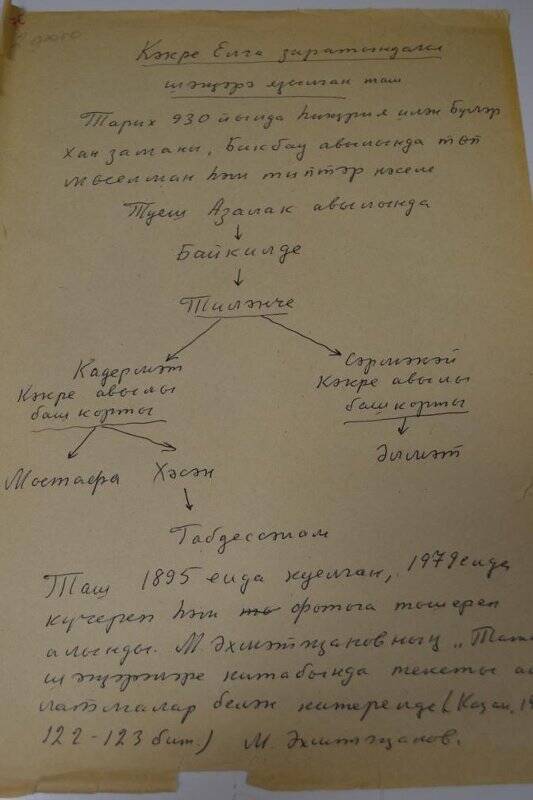 Кәкре Елга зиратындагы
шәҗәрә язылган таш
Тарих 930 йылда һиҗрия илән Бүләр
Хан заманы, Бикбау авылында төп
мөселман һәм типтәр нәселе
Туеш Азалак авылында
Байкилде
Тиләнче
Кадермәт
Кәкре авылы
башкорты
Сәрмәкәй
Кәкре авылы
башкорты
Мостафа Хәсән
Әлмәт
Габдессәлам
Таш 1895 елда куелган, 1979 елда
күчереп һәм фотога төшереп
алынды. М. Әхмәтҗановның „Татар
шәҗәрәләре китабында тексты
латмалар белән китерелде (Казан, 19
122-123 бит.) М. Әхмәтҗанов.